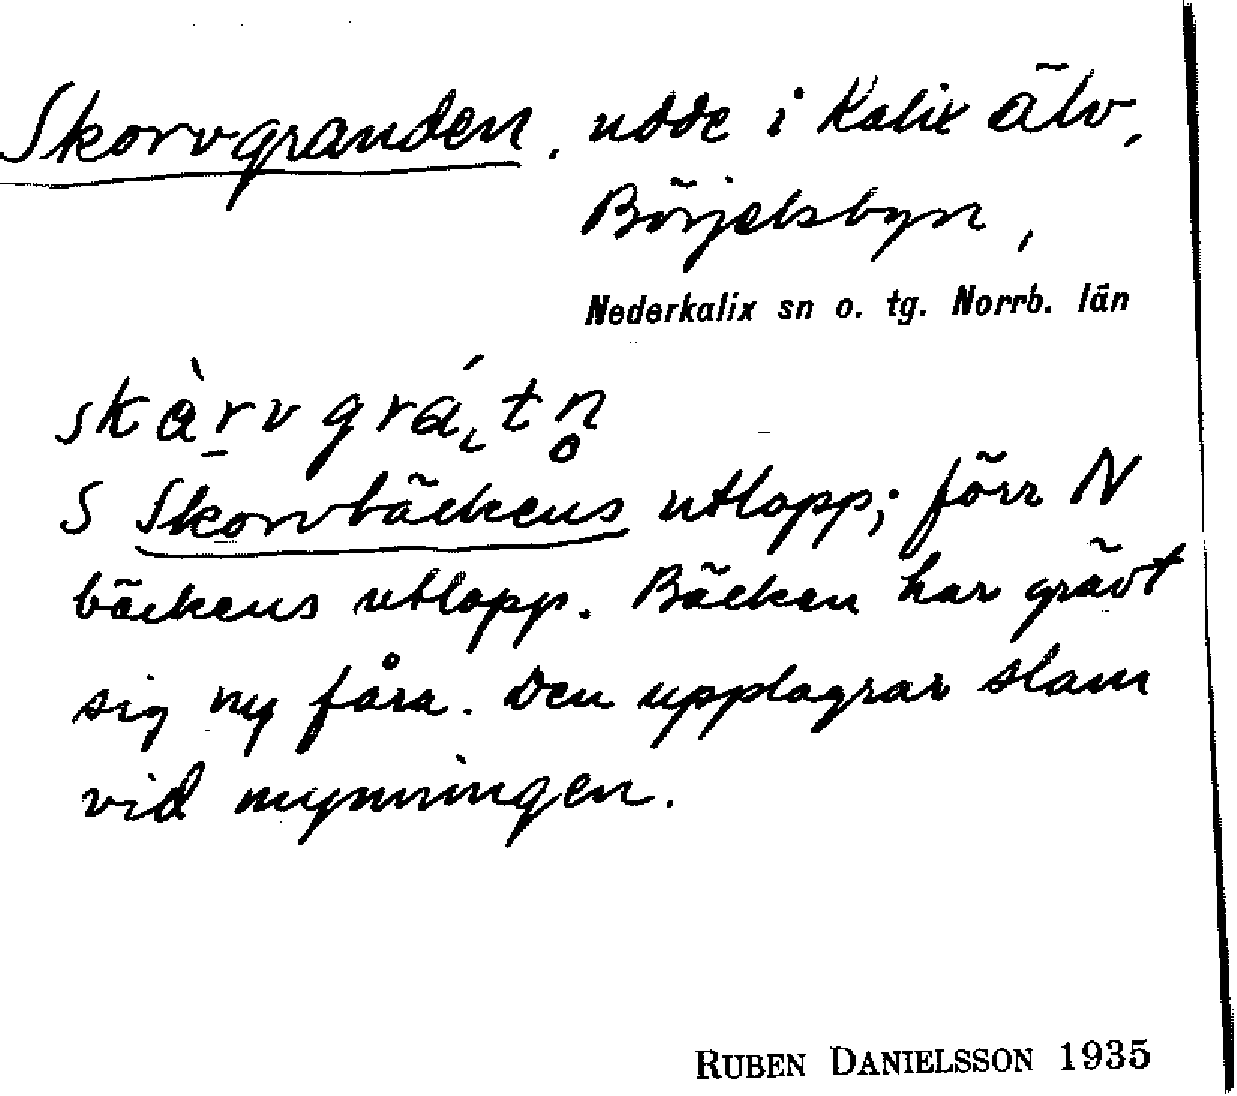 Skorvgranden, udde i Kalix älv,
Börjelsbyn,
Nederkalix sn o. tg. Norrb. län
skàrvgrátn̥
S Skorvbäckens utlopp; förr N
bäckens utlopp. Bäcken har grävt
sig ny fåra. Den upplagrar slam
vid mynningen.
RUBEN DANIELSSON 1935